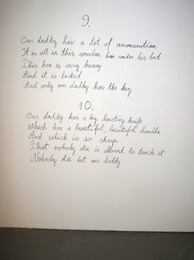 9.
Our daddy has a lot of ammunition
It is all in this wooden box under his bed
This box is very heavy
And it is locked
And only our daddy has the key
10.
Our daddy has a big hunting knife
Which has a beautiful, beautiful handle
And which is so sharp
That nobody else is allowed to touch it
Nobody else but our daddy